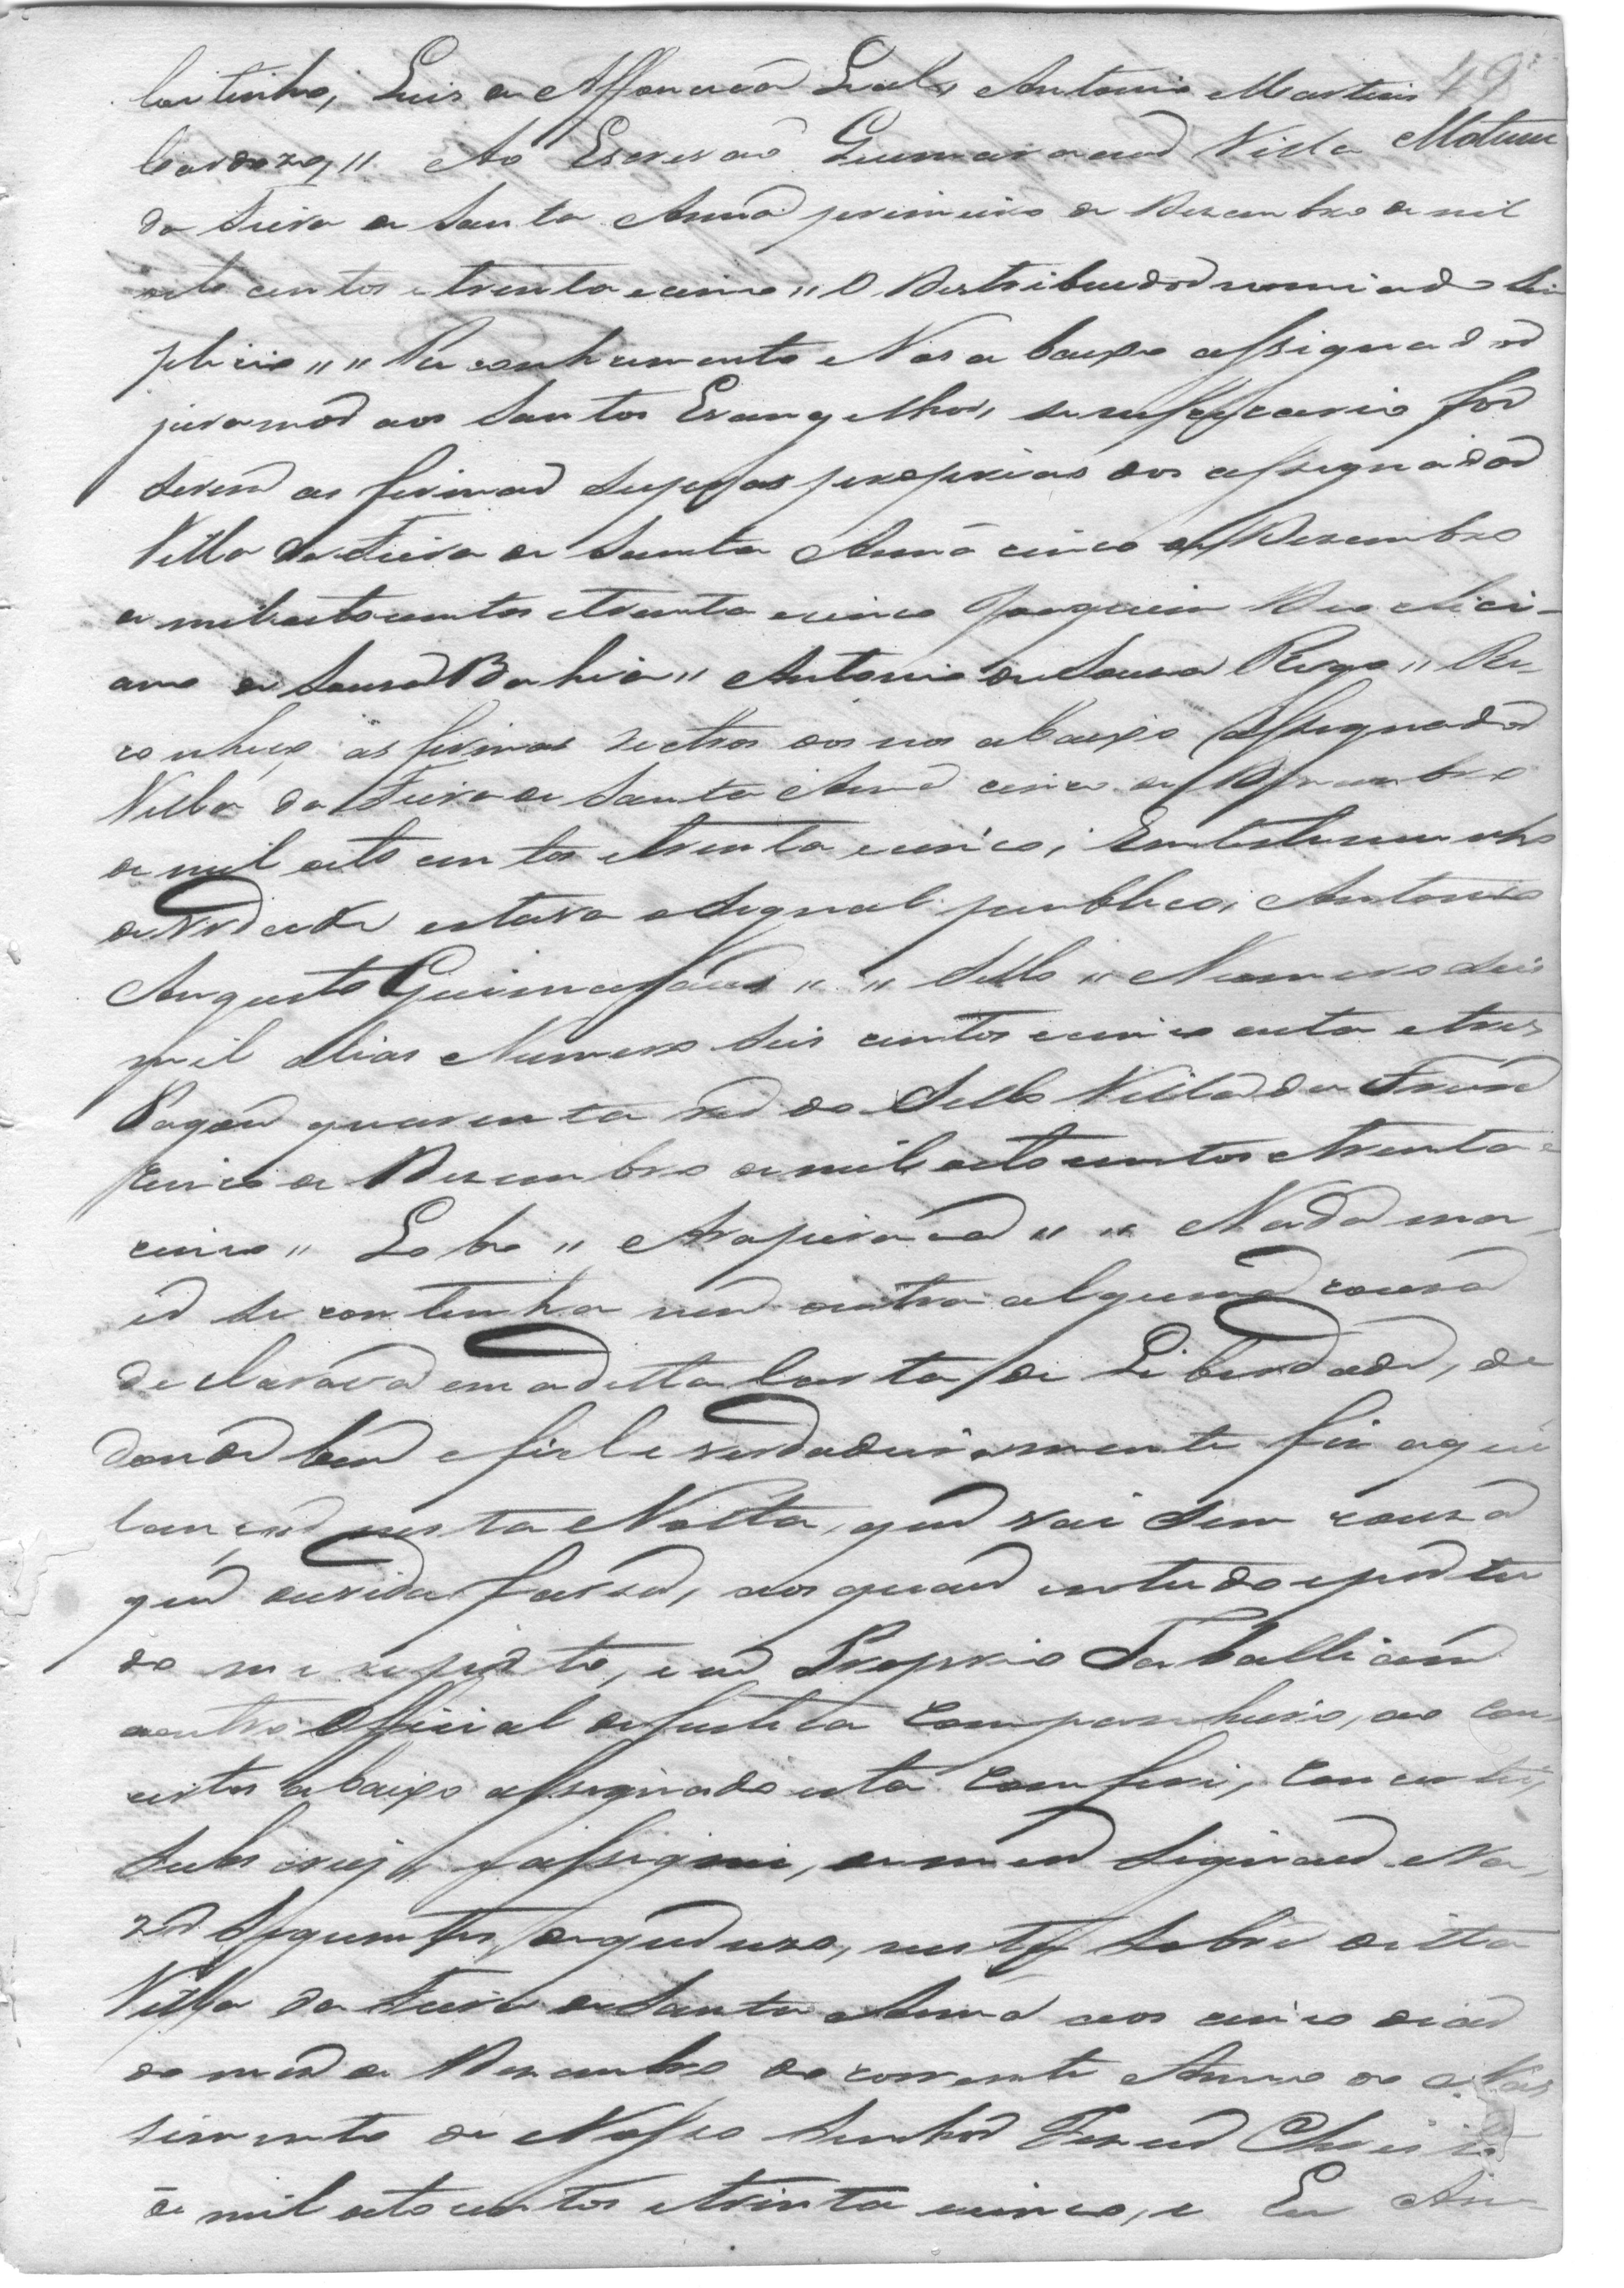 Coitinho, Luis de Affonceca Leal, Antonio Martins 49
Cardozo,, Ao Escrivaõ Guimaraens Villa
da Feira de Santa Anna primeiro de Dezembro de mil
oito centos e trenta e cinco,, O Destribuidor nomiado Sim
plicio,, ,, Reconhecimento Nos abaixo assignados
juramos aos Santos Evangelhos, se nessessario for
serem as firmas supras proprias dos assignados
Villa da Feira de Santa Anna cinco de Dezembro
de mil oito centos e trenta e cinco Joaquim
anno de Souza Bahia,, Antonio de Souza Rego,, Re-
conheço as firmas rectros dos nos abaixo assignados
Villa da Feira de Santa Anna cinco de Dezembro
de mil oito centos e trenta e cinco, Em testemunho
de verdade estava o signal publico, Antonio
Augusto Guimaraens ,, ,, Sello ,, Numero seis
mil Dias Numero seis centos e cincoenta e tres
Pagou quarenta reis do Sello Villa da Feira
cinco de Dezembro de mil oito centos e trenta e
cinco ,, Lobo ,, Araponga ,, ,, Nada ma
is se continha nem outra alguma couza
declarava em a ditta Carta de Liberdade, de
donde bem e fiel e verdadeiramente fiz aqui
lançar nesta Notta, que vai sem couza
que duvida faça, aos quaes em tudo e por tu
do me reporto, e ao Proprio Taballiam
outro Official de Justiça Companheiro, ao con
certos abaixo assignado esta Comferi, Concertei,
Subscrevj,, e assignei, de meos signaes
zos seguintes de que uzo, nesta sobre ditta
Villa da Feira de Santa Anna aos cinco dias
do mes de Dezembro do corrente Anno do Nas
simento de Nosso Senhor Jezus Christo
de mil oito centos e trinta e cinco, e Eu An